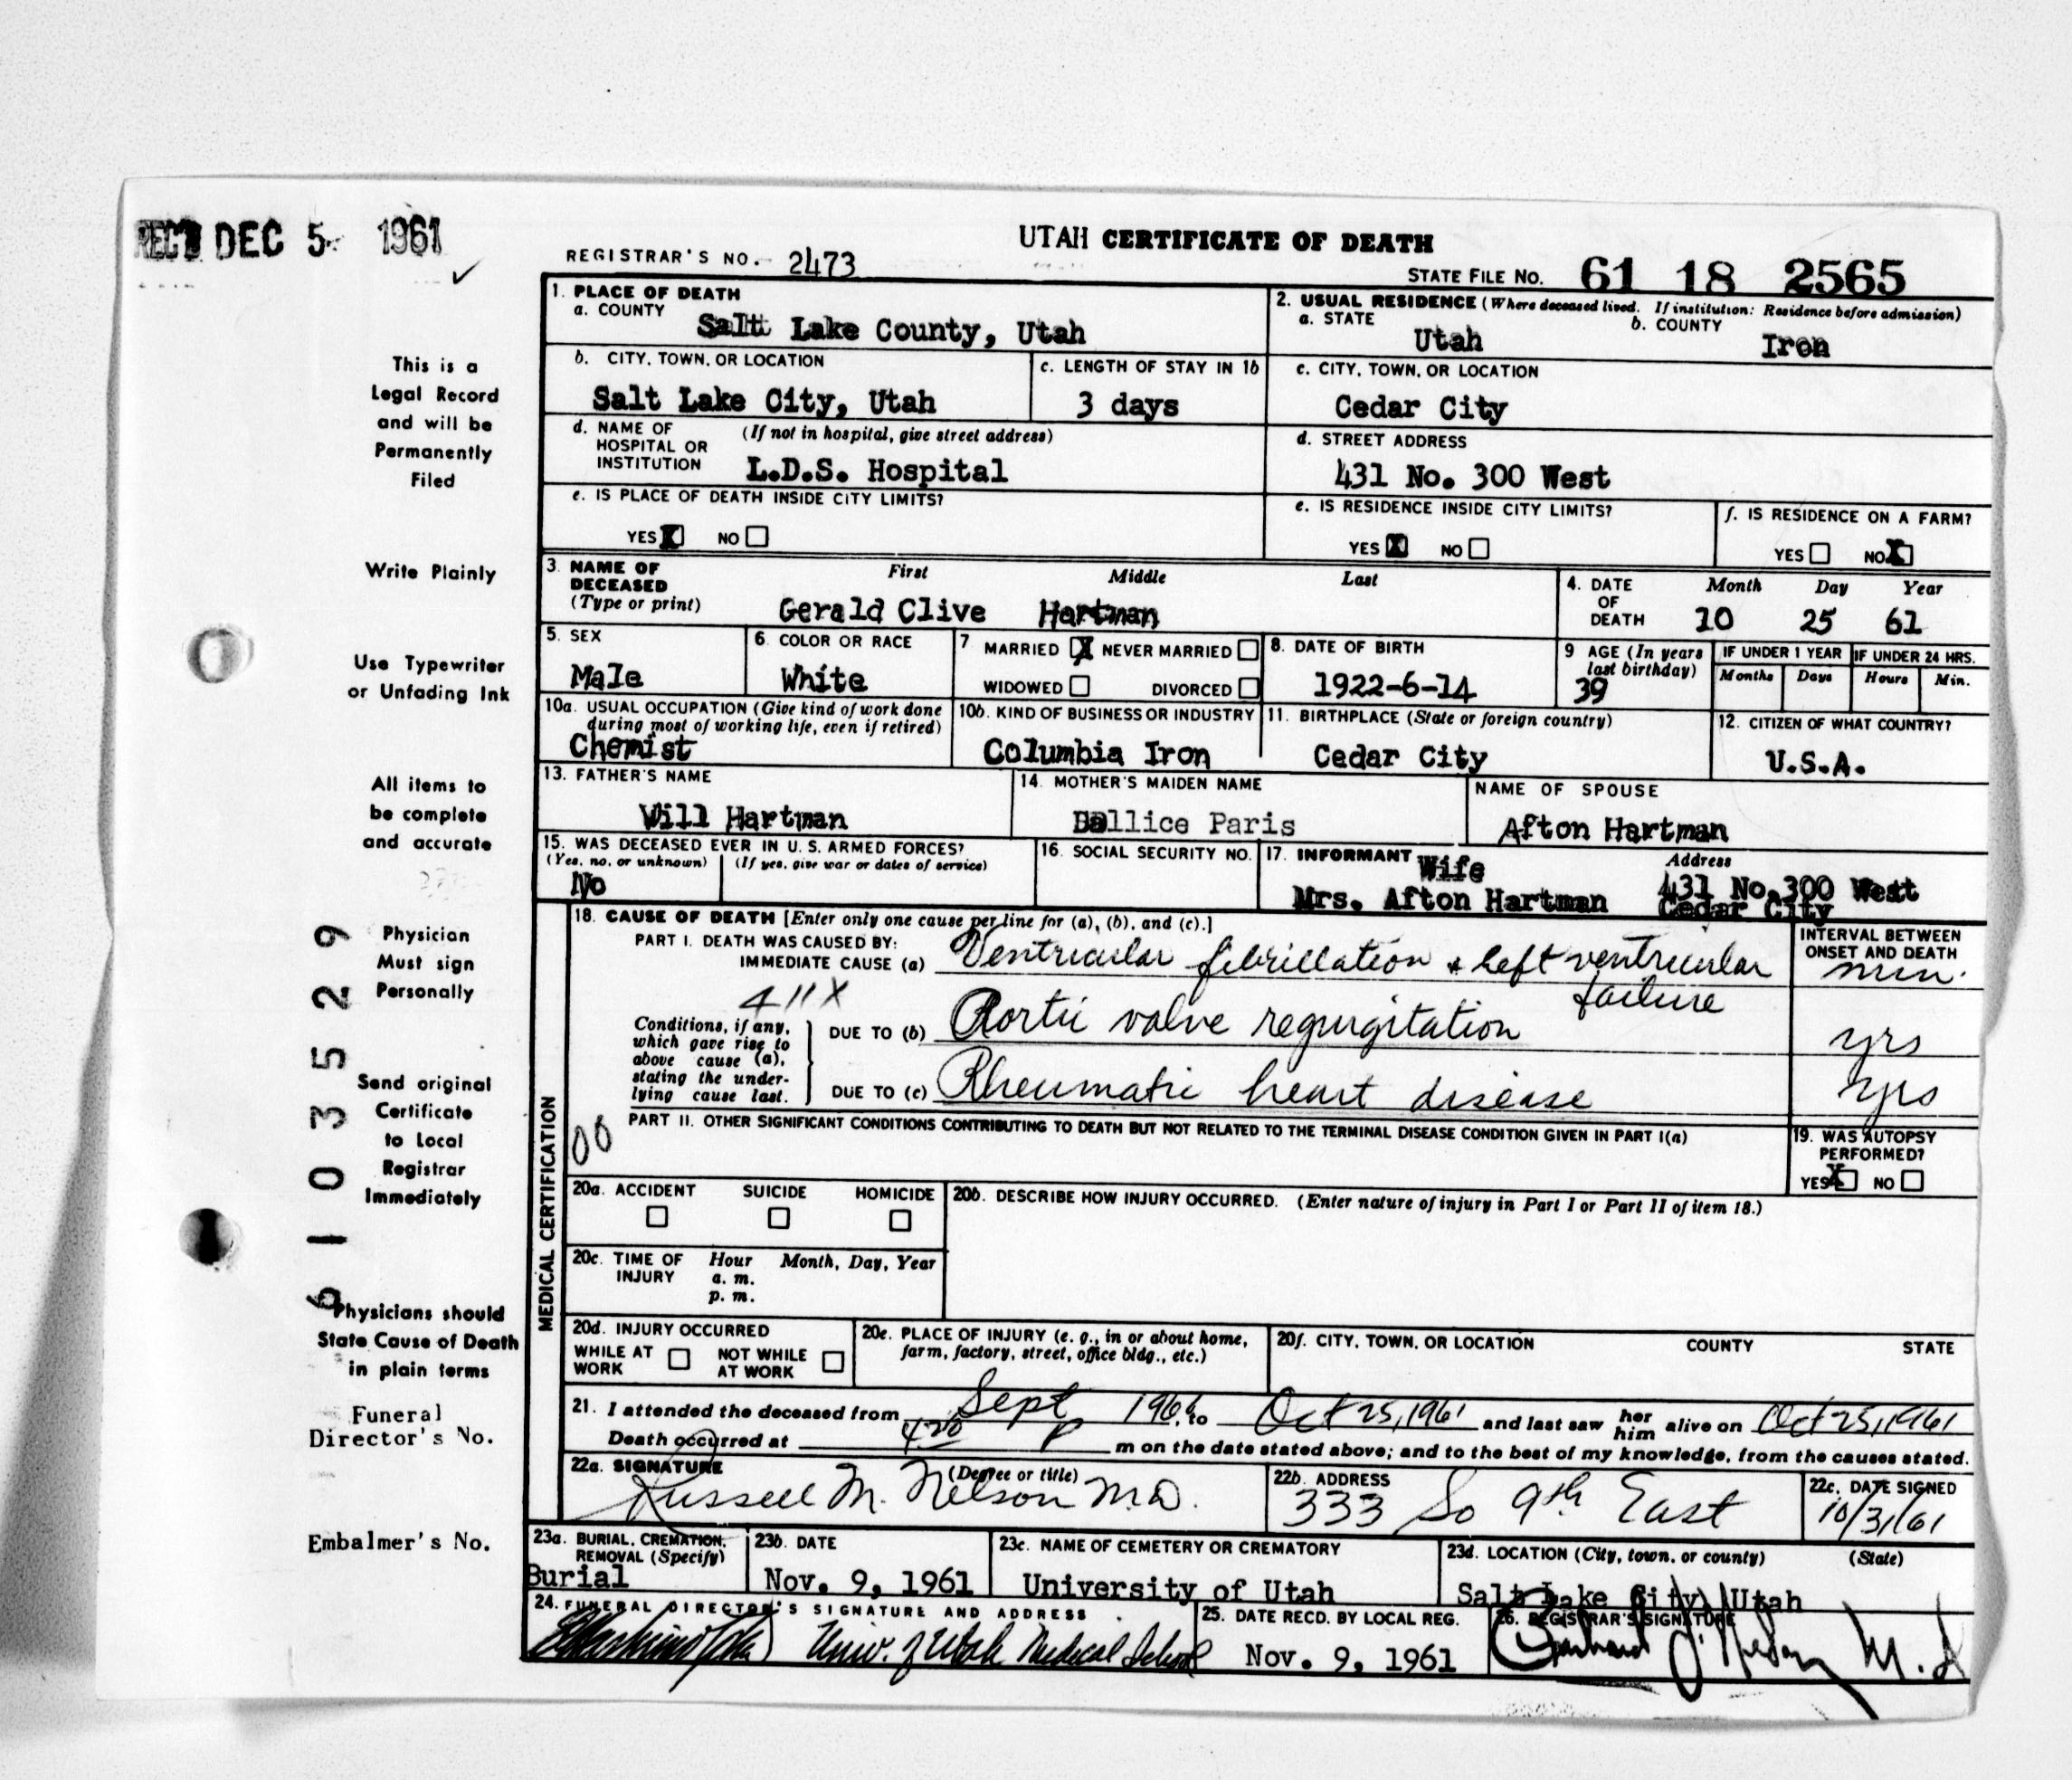 REC'D DEC 5 1961
UTAH CERTIFICATE OF DEATH
REGISTRAR'S NO. 2473
STATE FILE NO. 61 18 2565
1. PLACE OF DEATH
a. COUNTY
Salt Lake County, Utah
2. USUAL RESIDENCE (Where deceased lived. If institution: Residence before admission)
a. STATE b. COUNTY
Utah Iron
b. CITY, TOWN, OR LOCATION
Salt Lake City, Utah
c. LENGTH OF STAY IN 1b
3 days
c. CITY, TOWN, OR LOCATION
Cedar City
d. NAME OF HOSPITAL OR INSTITUTION (If not in hospital, give street address)
L.D.S. Hospital
d. STREET ADDRESS
431 No. 300 West
e. IS PLACE OF DEATH INSIDE CITY LIMITS?
YES X NO
e. IS RESIDENCE INSIDE CITY LIMITS?
YES X NO
f. IS RESIDENCE ON A FARM?
YES NO X
3. NAME OF DECEASED (Type or print)
First Middle Last
Gerald Clive Hartman
4. DATE OF DEATH
Month Day Year
10 25 61
5. SEX
Male
6. COLOR OR RACE
White
7 MARRIED X NEVER MARRIED
WIDOWED DIVORCED
8. DATE OF BIRTH
1922-6-14
9 AGE (In years last birthday)
39
IF UNDER 1 YEAR
Months Days
IF UNDER 24 HRS.
Hours Min.
10a. USUAL OCCUPATION (Give kind of work done during most of working life, even if retired)
Chemist
10b. KIND OF BUSINESS OR INDUSTRY
Columbia Iron
11. BIRTHPLACE (State or foreign country)
Cedar City
12. CITIZEN OF WHAT COUNTRY?
U.S.A.
13. FATHER'S NAME
Will Hartman
14. MOTHER'S MAIDEN NAME
Paris
NAME OF SPOUSE
Afton Hartman
15. WAS DECEASED EVER IN U. S. ARMED FORCES?
(Yes, no, or unknown) (If yes, give war or dates of service)
No
16. SOCIAL SECURITY NO.
17. INFORMANT Wife
Mrs. Afton Hartman
Address
431 No. 300 West
Cedar City
MEDICAL CERTIFICATION
18. CAUSE OF DEATH [Enter only one cause per line for (a), (b), and (c).]
PART I. DEATH WAS CAUSED BY:
IMMEDIATE CAUSE (a) Ventricular fibrillation + left ventricular
failure
INTERVAL BETWEEN ONSET AND DEATH
min.
411X
Conditions, if any, which gave rise to above cause (a), stating the underlying cause last.
DUE TO (b) Aortic valve regurgitation
yrs
DUE TO (c) Rheumatic heart disease
yrs
00
PART II. OTHER SIGNIFICANT CONDITIONS CONTRIBUTING TO DEATH BUT NOT RELATED TO THE TERMINAL DISEASE CONDITION GIVEN IN PART I(a)
19. WAS AUTOPSY PERFORMED?
YES X NO
20a. ACCIDENT SUICIDE HOMICIDE
20b. DESCRIBE HOW INJURY OCCURRED. (Enter nature of injury in Part I or Part II of item 18.)
20c. TIME OF INJURY
Hour Month, Day, Year
a. m.
p. m.
20d. INJURY OCCURRED
WHILE AT WORK NOT WHILE AT WORK
20e. PLACE OF INJURY (e. g., in or about home, farm, factory, street, office bldg., etc.)
20f. CITY, TOWN, OR LOCATION COUNTY STATE
21. I attended the deceased from Sept 1961, to Oct 25, 1961 and last saw her him alive on Oct 25, 1961
Death occurred at 4:20 P m on the date stated above; and to the best of my knowledge, from the causes stated.
22a. SIGNATURE (Degree or title)
Russell M. Nelson M.D.
22b. ADDRESS
333 So 9th East
22c. DATE SIGNED
10/31/61
23a. BURIAL, CREMATION, REMOVAL (Specify)
Burial
23b. DATE
Nov. 9, 1961
23c. NAME OF CEMETERY OR CREMATORY
University of Utah
23d. LOCATION (City, town, or county) (State)
Salt Lake City, Utah
24. FUNERAL DIRECTOR'S SIGNATURE AND ADDRESS
Univ. of Utah Medical School
25. DATE RECD. BY LOCAL REG.
Nov. 9, 1961
26. REGISTRAR'S SIGNATURE
This is a
Legal Record
and will be
Permanently
Filed
Write Plainly
Use Typewriter
or Unfading Ink
All items to
be complete
and accurate
Physician
Must sign
Personally
Send original
Certificate
to Local
Registrar
Immediately
Physicians should
State Cause of Death
in plain terms
Funeral
Director's No.
Embalmer's No.
6103529